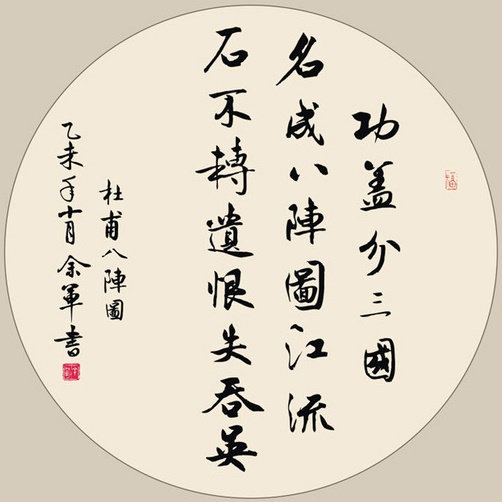 功盖分三國
名成八陣圖江流
石不轉遺恨失吞吴
杜甫八陣圖
乙未年十月余軍書